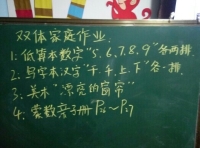 双休家庭作业
1. 低算本数字"5、6、7、8、9"各两排
2. 写字本汉字"千、午、上、下"各一排
3. 美术"漂亮的窗帘"
4. 数学 册P26～P27